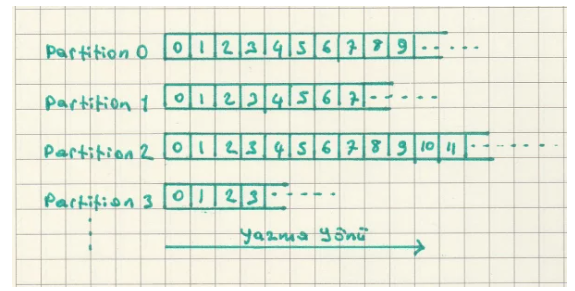 Partition 0 0 1 2 3 4 5 6 7 8 9 ......
Partition 1 0 1 2 3 4 5 6 7 .....
Partition 2 0 1 2 3 4 5 6 7 8 9 10 11 .......
Partition 3 0 1 2 3 ......
Yazma Yönü